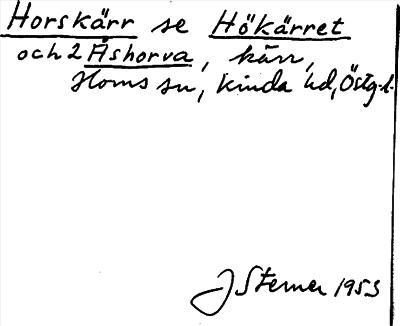 Horskärr se Hökärret
och 2 Åshorva, kärr,
Horns sn, Kinda hd, Östg. l.
J Sterner 1953